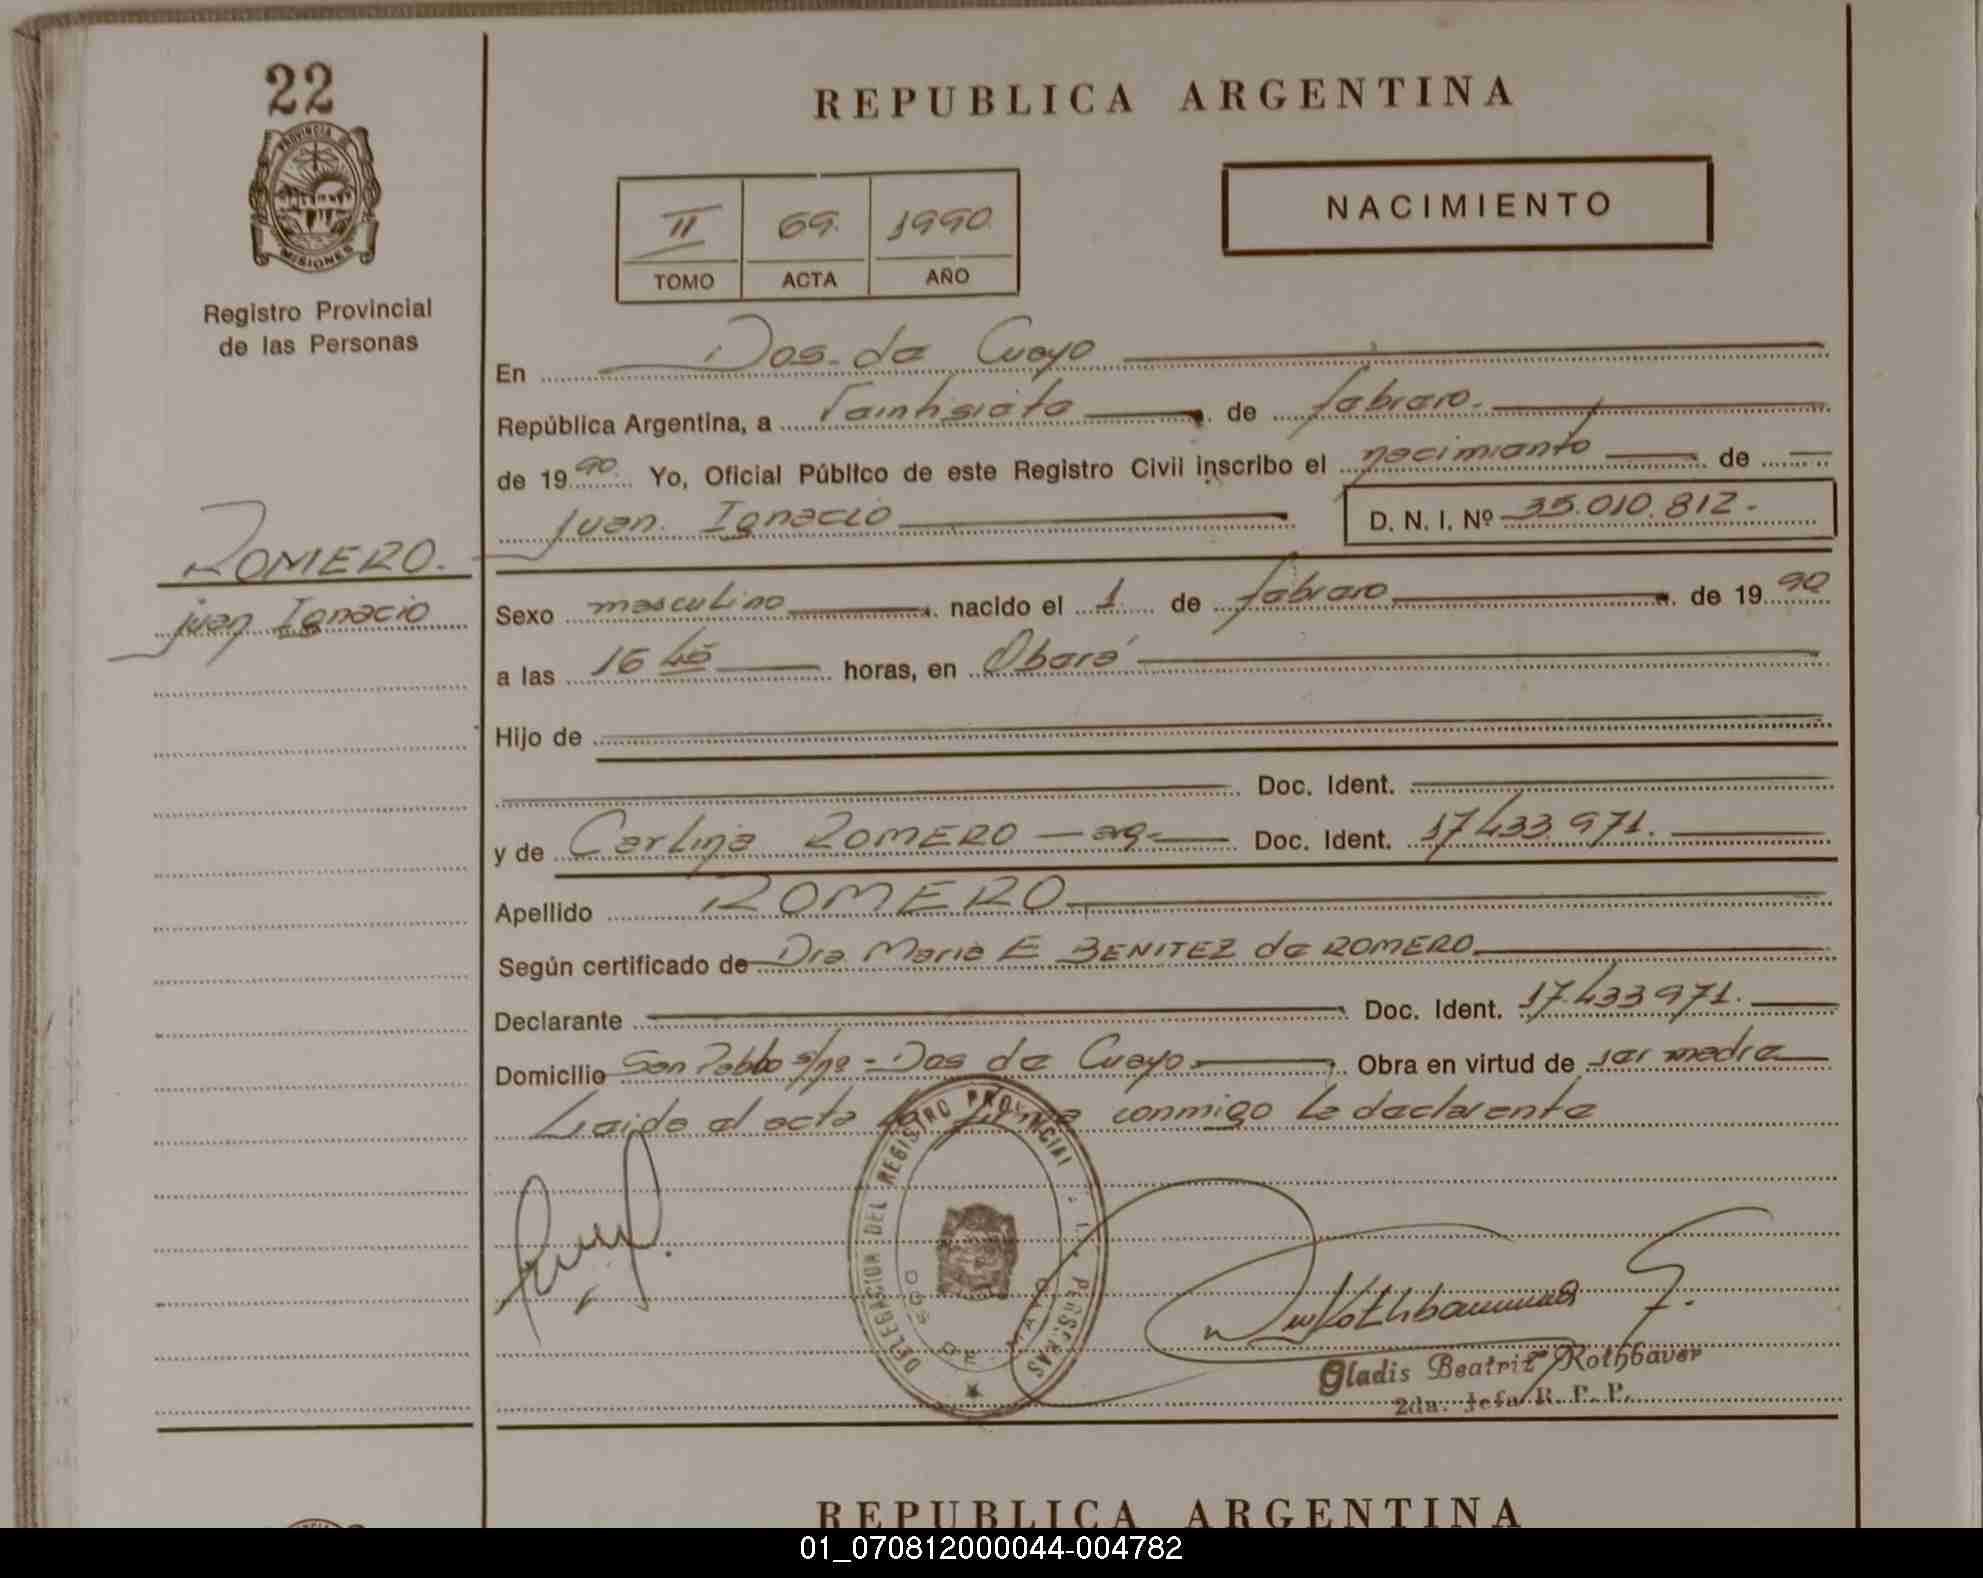 22
PROVINCIA DE
MISIONES
Registro Provincial
de las Personas
ROMERO.
Juan Ignacio
REPUBLICA ARGENTINA
II 69. 1990
TOMO ACTA AÑO
NACIMIENTO
En Dos de Cuayo
República Argentina, a Veintisiete de febrero.
de 1990. Yo, Oficial Público de este Registro Civil inscribo el nacimiento de
Juan Ignacio D. N. I. Nº 35.010.812.-
Sexo masculino nacido el 1 de febrero de 1990
a las 16 45 horas, en Oberá
Hijo de
Doc. Ident.
y de Carlina ROMERO - arg- Doc. Ident. 17.433.971.
Apellido ROMERO
Según certificado de Dra Maria E BENITEZ de ROMERO
Declarante Doc. Ident. 17.433.971.
Domicilio San Pablo s/nº - Dos de Cuayo Obra en virtud de ser madre
Leida el acta la firma conmigo la declarante
DELEGACION DEL REGISTRO PROVINCIAL DE L. PERSONAS
DOS DE MAYO
Gladis Beatriz Rothbauer
2da. Jefa R. P. P.
REPUBLICA ARGENTINA
01_070812000044-004782